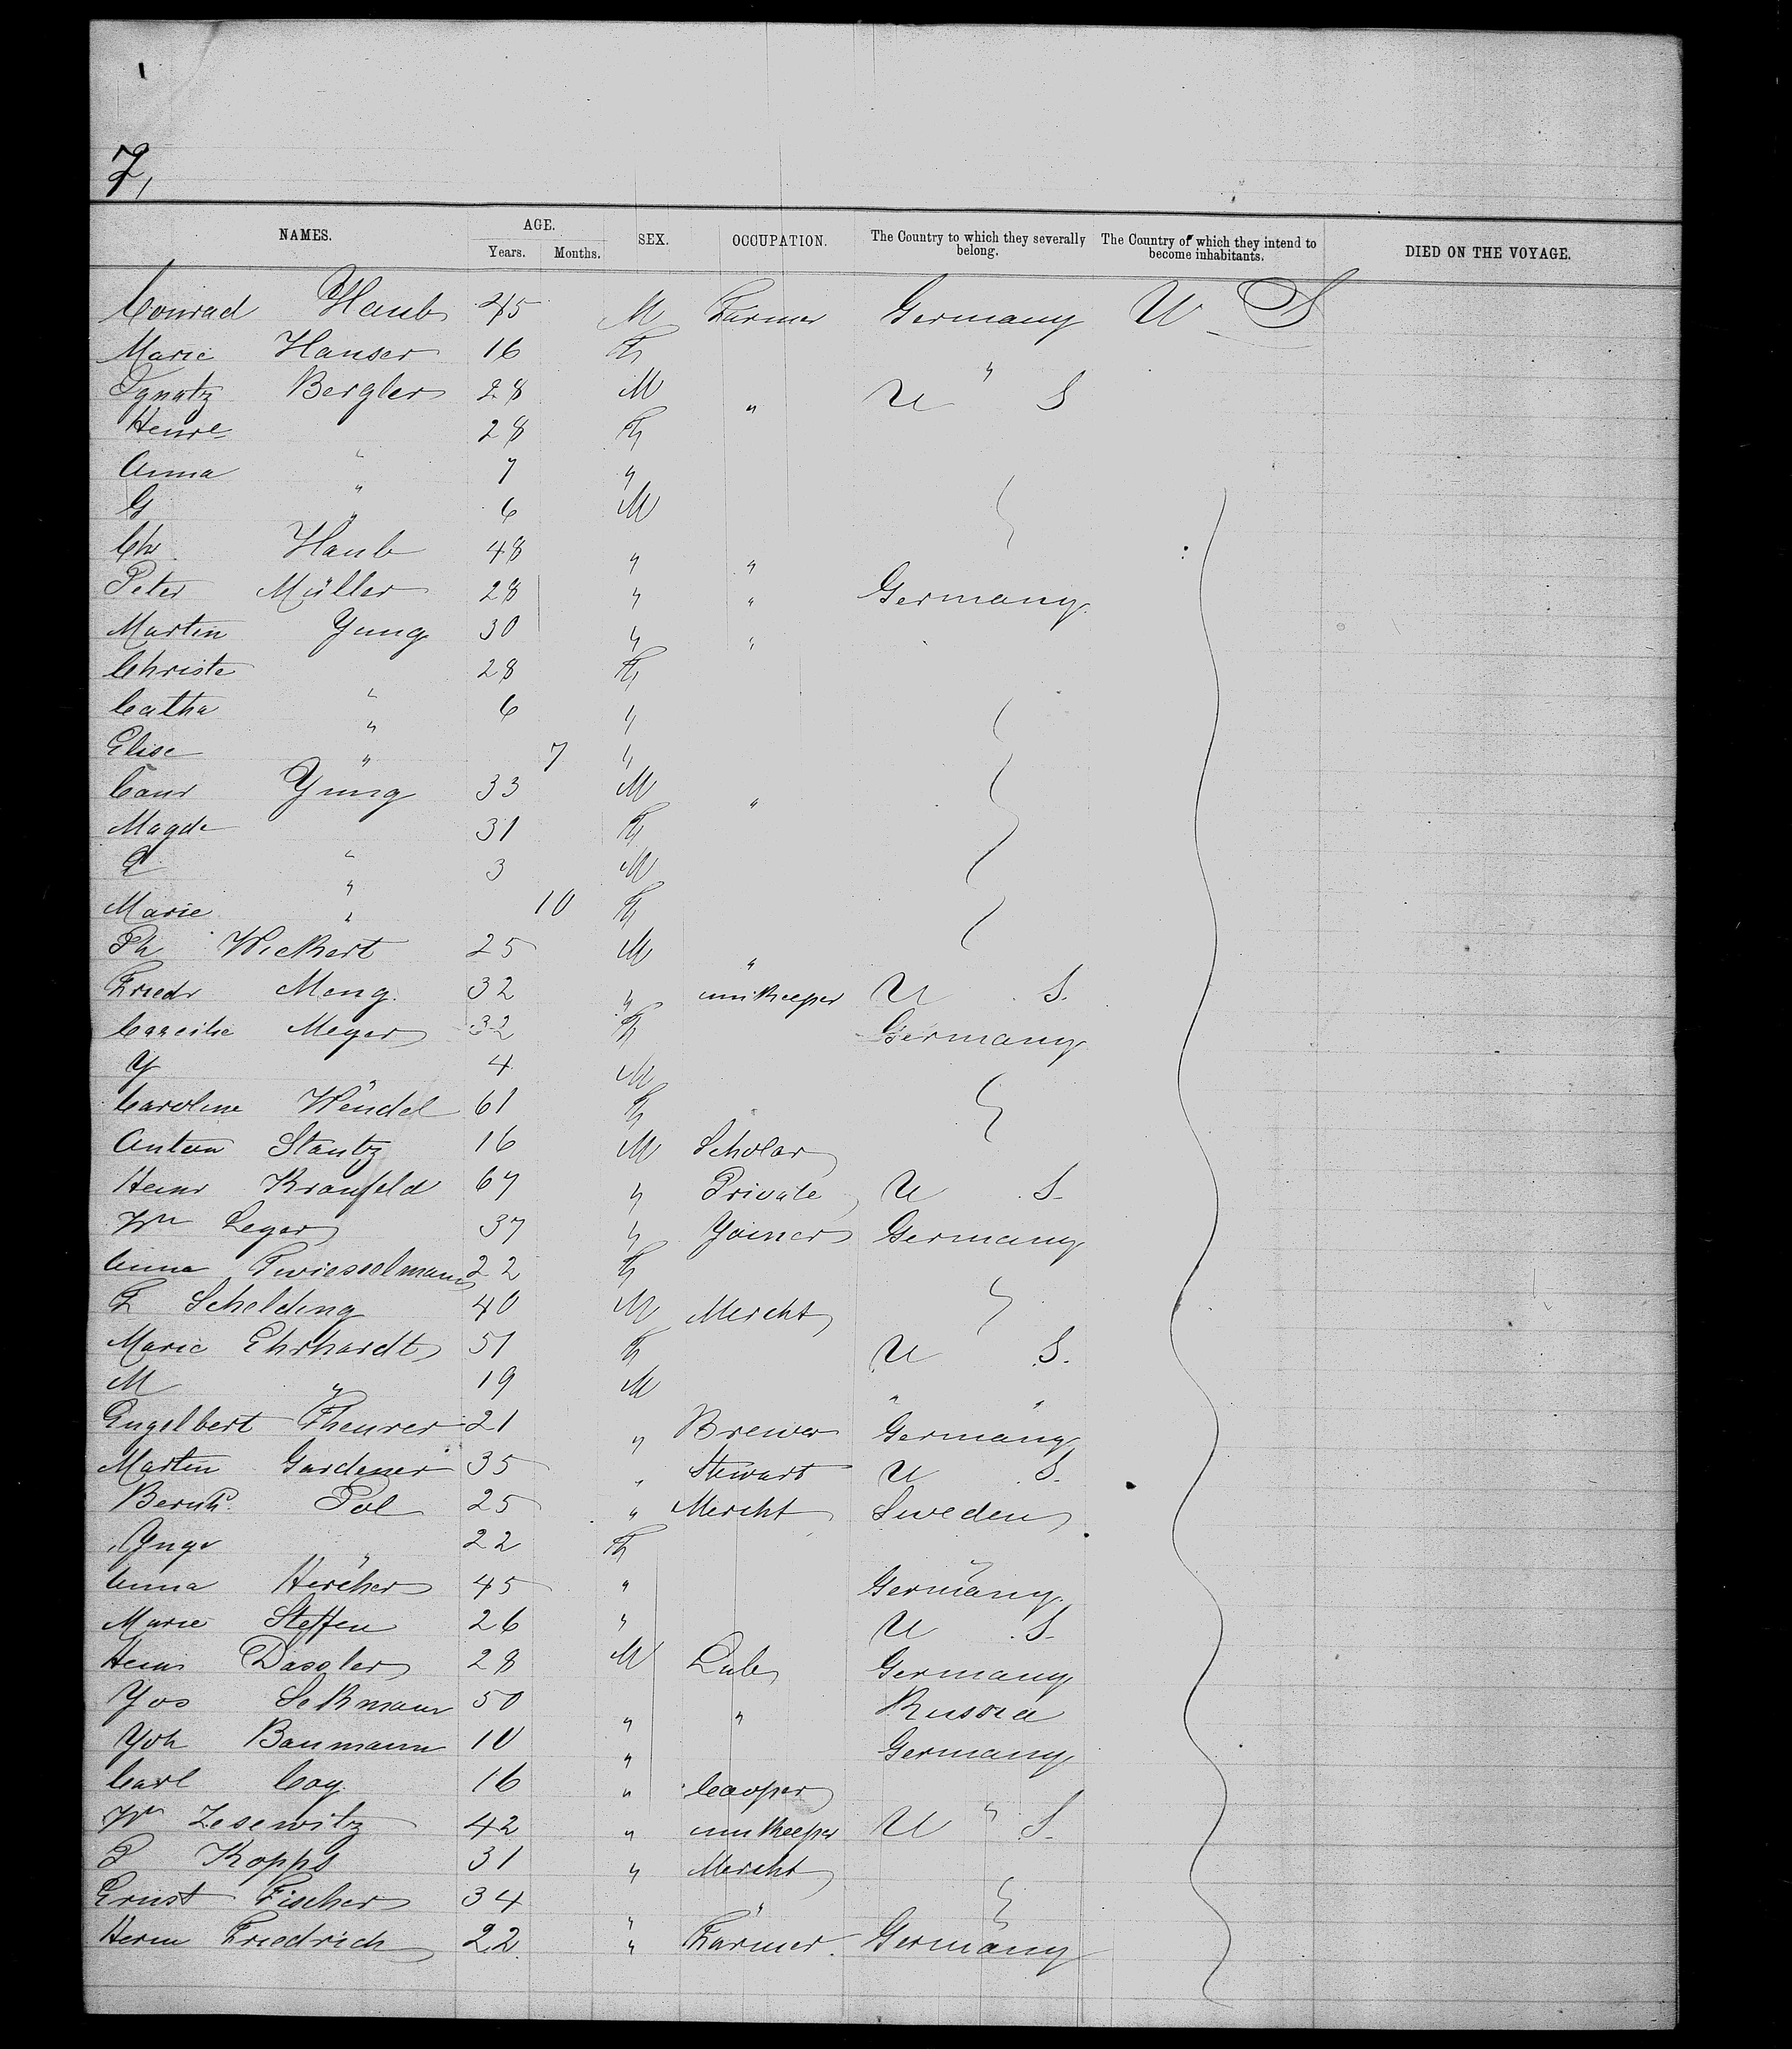 7,
NAMES. AGE. Years. Months. SEX. OCCUPATION. The Country to which they severally belong. The Country of which they intend to become inhabitants. DIED ON THE VOYAGE.
Conrad Haub 45 M Farmer Germany U S
Marie Hauser 16 F "
Ignatz Bergler 28 M " U S
Henre " 28 F
Anna " 7 "
G " 6 M
Chr Haub 48 " "
Peter Müller 28 " " Germany
Martin Yung 30 " "
Christe " 28 F
Catha " 6 "
Elise " 7 "
Yung 33 M "
Magde " 31 F
" 3 M
Marie " 10 F
Ph Wickert 25 M "
Friedr Meng 32 " innkeeper U S.
Meyer 32 F Germany
Y " 4 M
Caroline Wendel 61 F
Anton Stautz 16 M Scholar
Heinr Kranfeld 67 " Private U S.
Wm Leger 37 " Yoiner Germany
Anna Twiesselmann 22 F
F Schelding 40 M Mercht
Marie Ehrhardt 51 F U S.
M " 19 M " "
Engelbert Theurer 21 " Brewer Germany
Martin Gardener 35 " Stewart U S.
Bernh. Pol 25 " Mercht Sweden
" 22 F "
Anna Hercher 45 " Germany
Marie Steffen 26 " U S.
Heinr Dassler 28 M Lab Germany
Yos Sekmann 50 " " Russia
Yoh Baumann 10 " Germany
Carl Coy 16 " Cooper "
Wm Zesewitz 42 " innkeeper U S.
P Kopps 31 " Mercht
Ernst Fischer 34 " "
Herm Friedrich 22 " Farmer. Germany